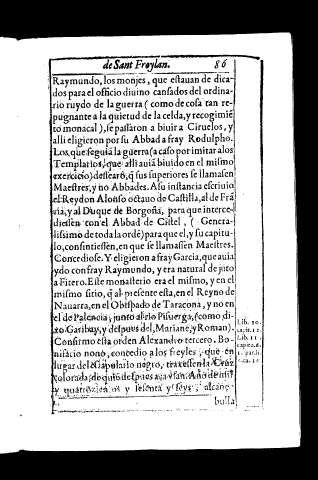 de Sant Froylan. 86
Raymundo, los monjes, que estauan de dica-
dos para el officio diuino cansados del ordina-
rio ruydo de la guerra (como de cosa tan re-
pugnante a la quietud de la celda, y recogimiē
to monacal), se passaron a biuir a Ciruelos, y
alli eligieron por su Abbad a fray Rodulpho.
Los que seguiā la guerra (a caso por imitar a los
Templarios, que alli auiā biuido en el mismo
exercicio) dessearō, q̄ sus superiores se llamassen
Maestres, y no Abbades. A su instancia escriuio
el Rey don Alonso octauo de Castilla, al de Frā
cia, y al Duque de Borgoña, para que interce-
diessen con el Abbad de Cistel, (Genera-
lissimo de toda la ordē) para que el, y su capitu-
lo, consintiessen, en que se llamassen Maestres.
Concediose. Y eligieron a fray Garcia, que auia
ydo con fray Raymundo, y era natural de junto
a Fitero. Este monasterio era el mismo, y en el
mismo sitio, q̄ al presente esta, en el Reyno de
Nauarra, en el Obispado de Taraçona, y no en
el de Palencia, junto al rio Pisuerga, (como di-
xo Garibay, y despues del, Mariane, y Roman).
Confirmo esta orden Alexandro tercero. Bo-
nifacio nono, concedio a los freyles, que en
lugar del escapulario negro, traxessen la Cruz
colorada, de que despues aca vsan. Año de mil
y quatrozientos y sesenta y seys, alcanço
bulla
Lib. 10.
capit. 12.
Lib. 11.